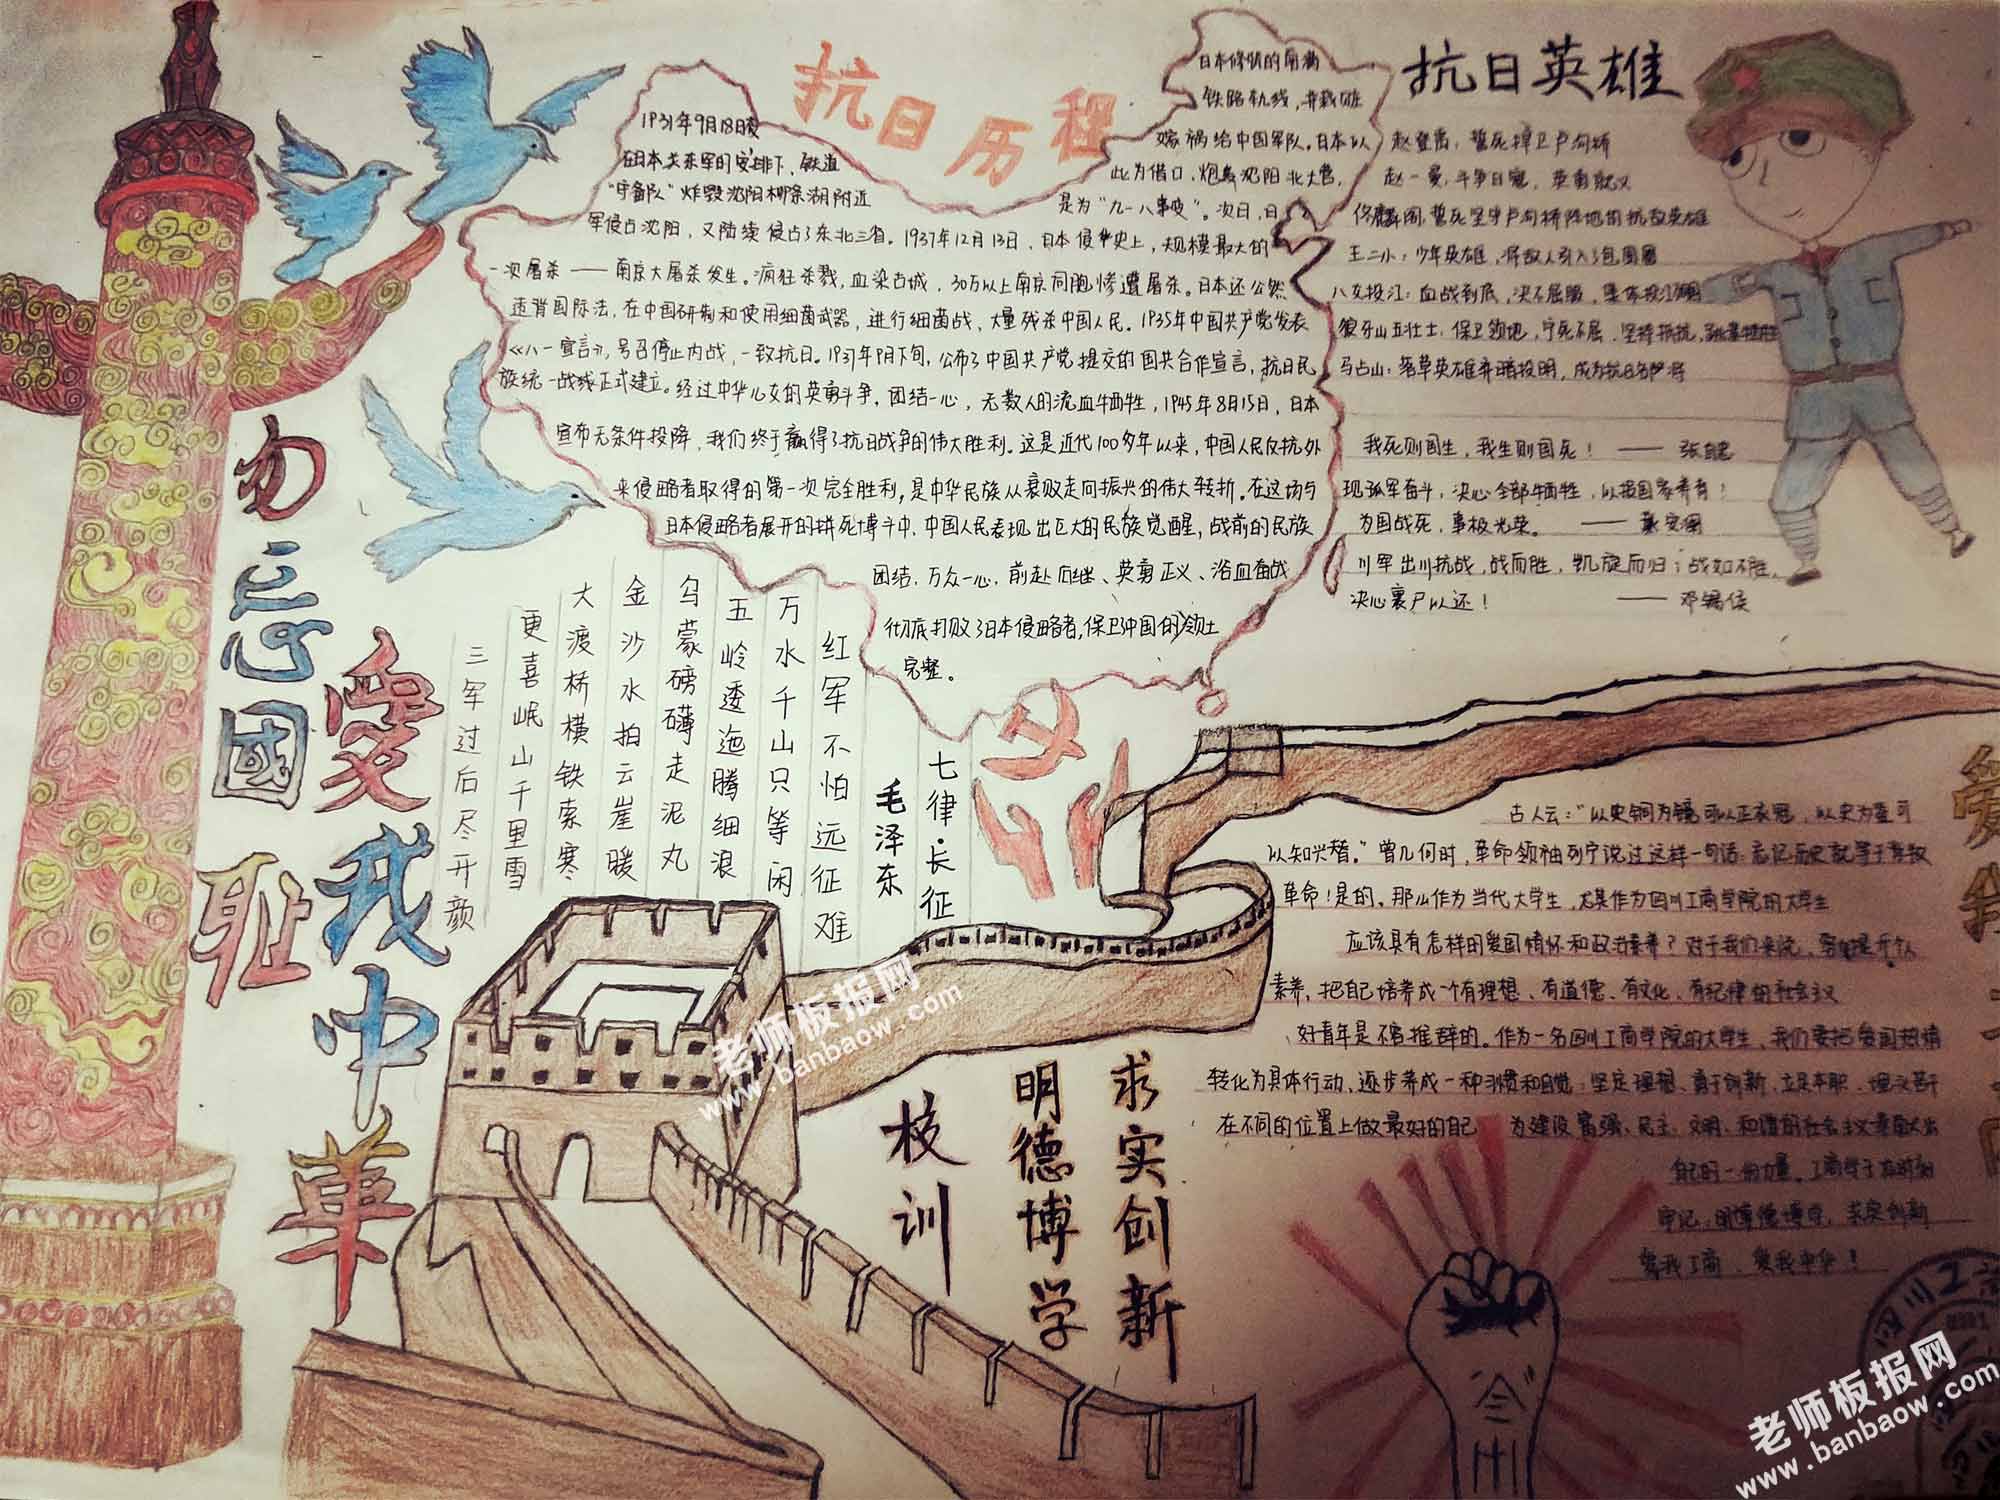 勿忘國耻
愛我中華
抗日历程
1931年9月18日夜
在日本关东军的安排下，铁道
“守备队”炸毁沈阳柳条湖附近
日本修筑的南满
铁路轨线，并栽赃
嫁祸给中国军队。日本以
此为借口，炮轰沈阳北大营，
是为“九一八事变”。次日，日
军侵占沈阳，又陆续侵占了东北三省。1937年12月13日，日本侵华史上，规模最大的
一次屠杀——南京大屠杀发生。疯狂杀戮，血染古城，30万以上南京同胞惨遭屠杀。日本还公然
违背国际法，在中国研制和使用细菌武器，进行细菌战，大量残杀中国人民。1935年中国共产党发表
《八一宣言》，号召停止内战，一致抗日。1937年9月下旬，公布了中国共产党提交的国共合作宣言，抗日民
族统一战线正式建立。经过中华儿女的英勇斗争，团结一心，无数人的流血牺牲，1945年8月15日，日本
宣布无条件投降，我们终于赢得了抗日战争的伟大胜利。这是近代100多年以来，中国人民反抗外
来侵略者取得的第一次完全胜利，是中华民族从衰败走向振兴的伟大转折。在这场与
日本侵略者展开的拼死博斗中，中国人民表现出巨大的民族觉醒，战前的民族
团结，万众一心，前赴后继、英勇正义、浴血奋战
彻底打败了日本侵略者，保卫中国的领土
完整。
抗日英雄
赵登禹，誓死捍卫卢沟桥
赵一曼，斗争日寇，英勇就义
佟麟阁，誓死坚守卢沟桥阵地的抗敌英雄
王二小：少年英雄，将敌人引入了包围圈
八女投江：血战到底，决不屈服，集体投江
狼牙山五壮士：保卫领地，宁死不屈，坚持抵抗，
马占山：落草英雄弃暗投明，成为抗日名将
我死则国生，我生则国死！——张自忠
现孤军奋斗，决心全部牺牲，以报国家养育！
为国战死，事极光荣。——戴安澜
川军出川抗战，战而胜，凯旋而归；战如不胜，
决心裹尸以还！——邓锡侯
七律·长征
毛泽东
红军不怕远征难
万水千山只等闲
五岭逶迤腾细浪
乌蒙磅礴走泥丸
金沙水拍云崖暖
大渡桥横铁索寒
更喜岷山千里雪
三军过后尽开颜
校训
明德博学
求实创新
古人云：“以史铜为镜可以正衣冠，以史为鉴可
以知兴替。”曾几何时，革命领袖列宁说过这样一句话：忘记历史就等于背叛
革命！是的，那么作为当代大学生，尤其作为四川工商学院的大学生
应该具有怎样的爱国情怀和政治素养？对于我们来说，提升个人
素养，把自己培养成一个有理想、有道德、有文化、有纪律的社会主义
好青年是不容推辞的。作为一名四川工商学院的大学生，我们要把爱国热情
转化为具体行动，逐步养成一种习惯和自觉：坚定理想、勇于创新、立足本职、埋头苦干
在不同的位置上做最好的自己 为建设富强、民主、文明、和谐的社会主义
自己的一份力量。工商学子
牢记：明德博学，求实创新
爱我工商，爱我中华！
老师板报网
www.banbaow.com
老师板报网
www.banbaow.com